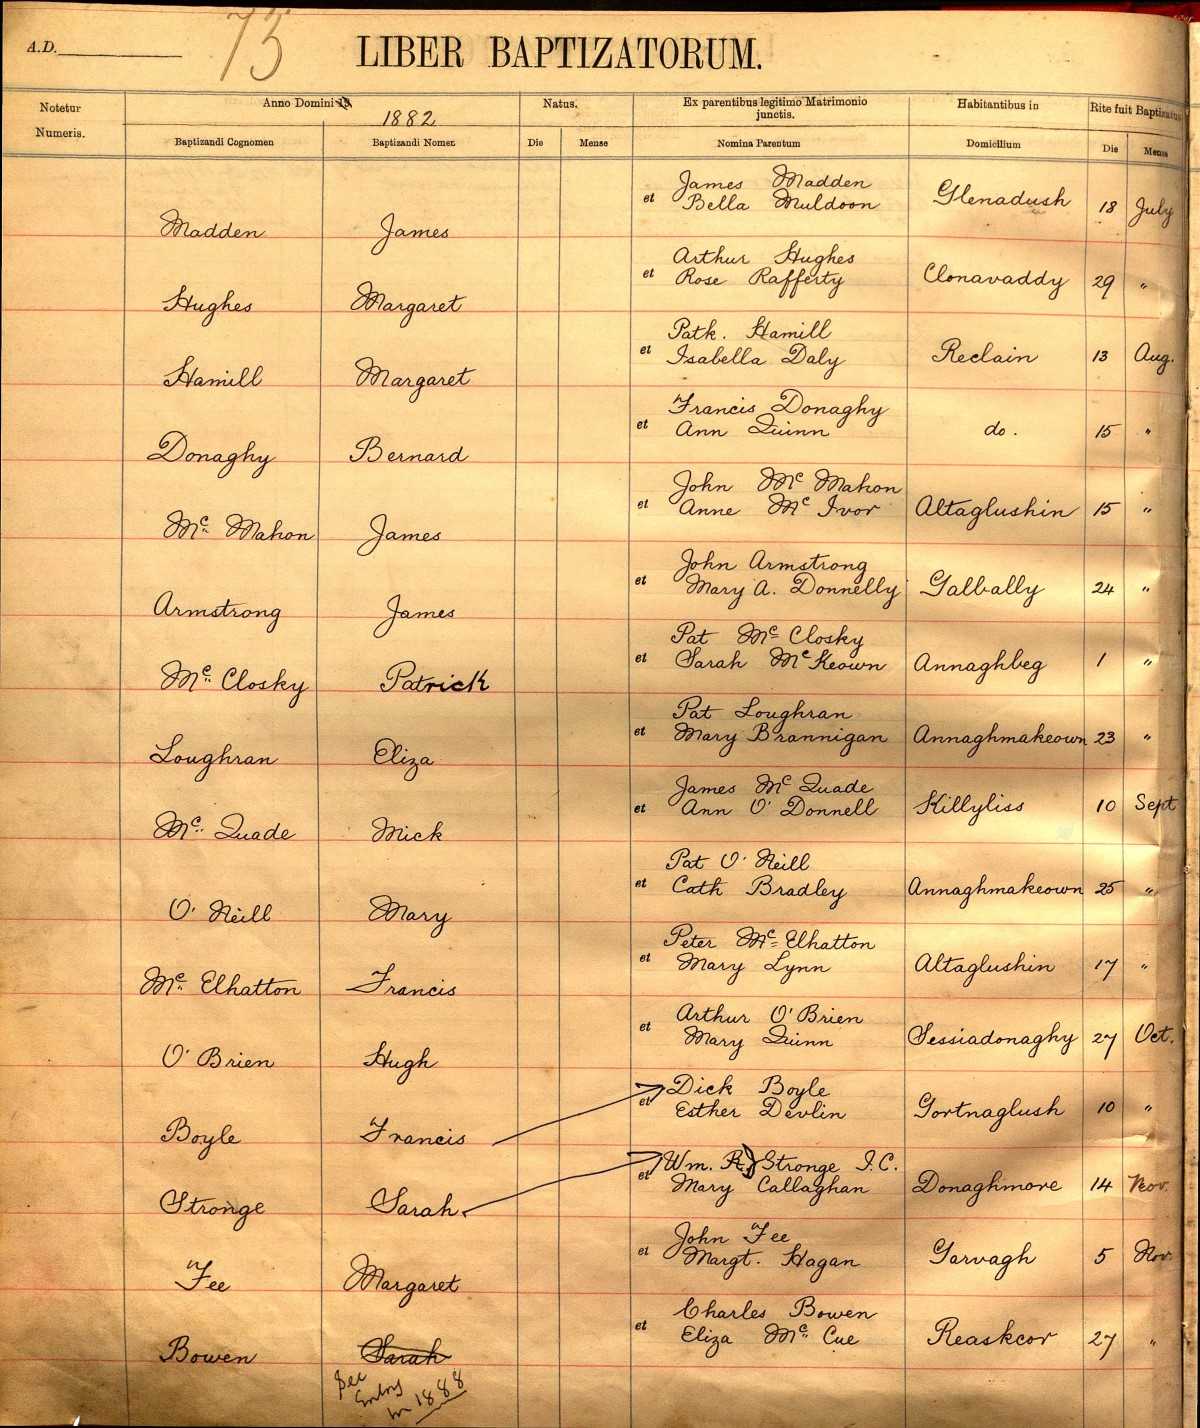 A.D. 73 LIBER BAPTIZATORUM.
Notetur Numeris. Anno Domini 18 1882 Natus. Ex parentibus legitimo Matrimonio junctis. Habitantibus in Rite fuit Baptizatus
Baptizandi Cognomen Baptizandi Nomen Die Mense Nomina Parentum Domicilium Die Mense
James Madden
Madden James et Bella Muldoon Glenadush 18 July
Arthur Hughes
Hughes Margaret et Rose Rafferty Clonavaddy 29 "
Patk. Hamill
Hamill Margaret et Isabella Daly Reclain 13 Aug.
Francis Donaghy
Donaghy Bernard et Ann Quinn do. 15 "
John Mc Mahon
Mc Mahon James et Anne Mc Ivor Altaglushin 15 "
John Armstrong
Armstrong James et Mary A. Donnelly Galbally 24 "
Pat Mc Closky
Mc Closky Patrick et Sarah Mc Keown Annaghbeg 1 "
Pat Loughran
Loughran Eliza et Mary Brannigan Annaghmakeown 23 "
James Mc Quade
Mc Quade Mick et Ann O' Donnell Killyliss 10 Sept
Pat O' Neill
O' Neill Mary et Cath Bradley Annaghmakeown 25 "
Peter Mc Elhatton
Mc Elhatton Francis et Mary Lynn Altaglushin 17 "
Arthur O' Brien
O' Brien Hugh et Mary Quinn Sessiadonaghy 27 Oct.
Dick Boyle
Boyle Francis et Esther Devlin Gortnaglush 10 "
Wm. R. Stronge I.C.
Stronge Sarah et Mary Callaghan Donaghmore 14 Nov.
John Fee
Fee Margaret et Margt. Hagan Garvagh 5 Nov.
Charles Bowen
Bowen Sarah et Eliza Mc Cue Reaskcor 27 "
See
Entry
in 1888